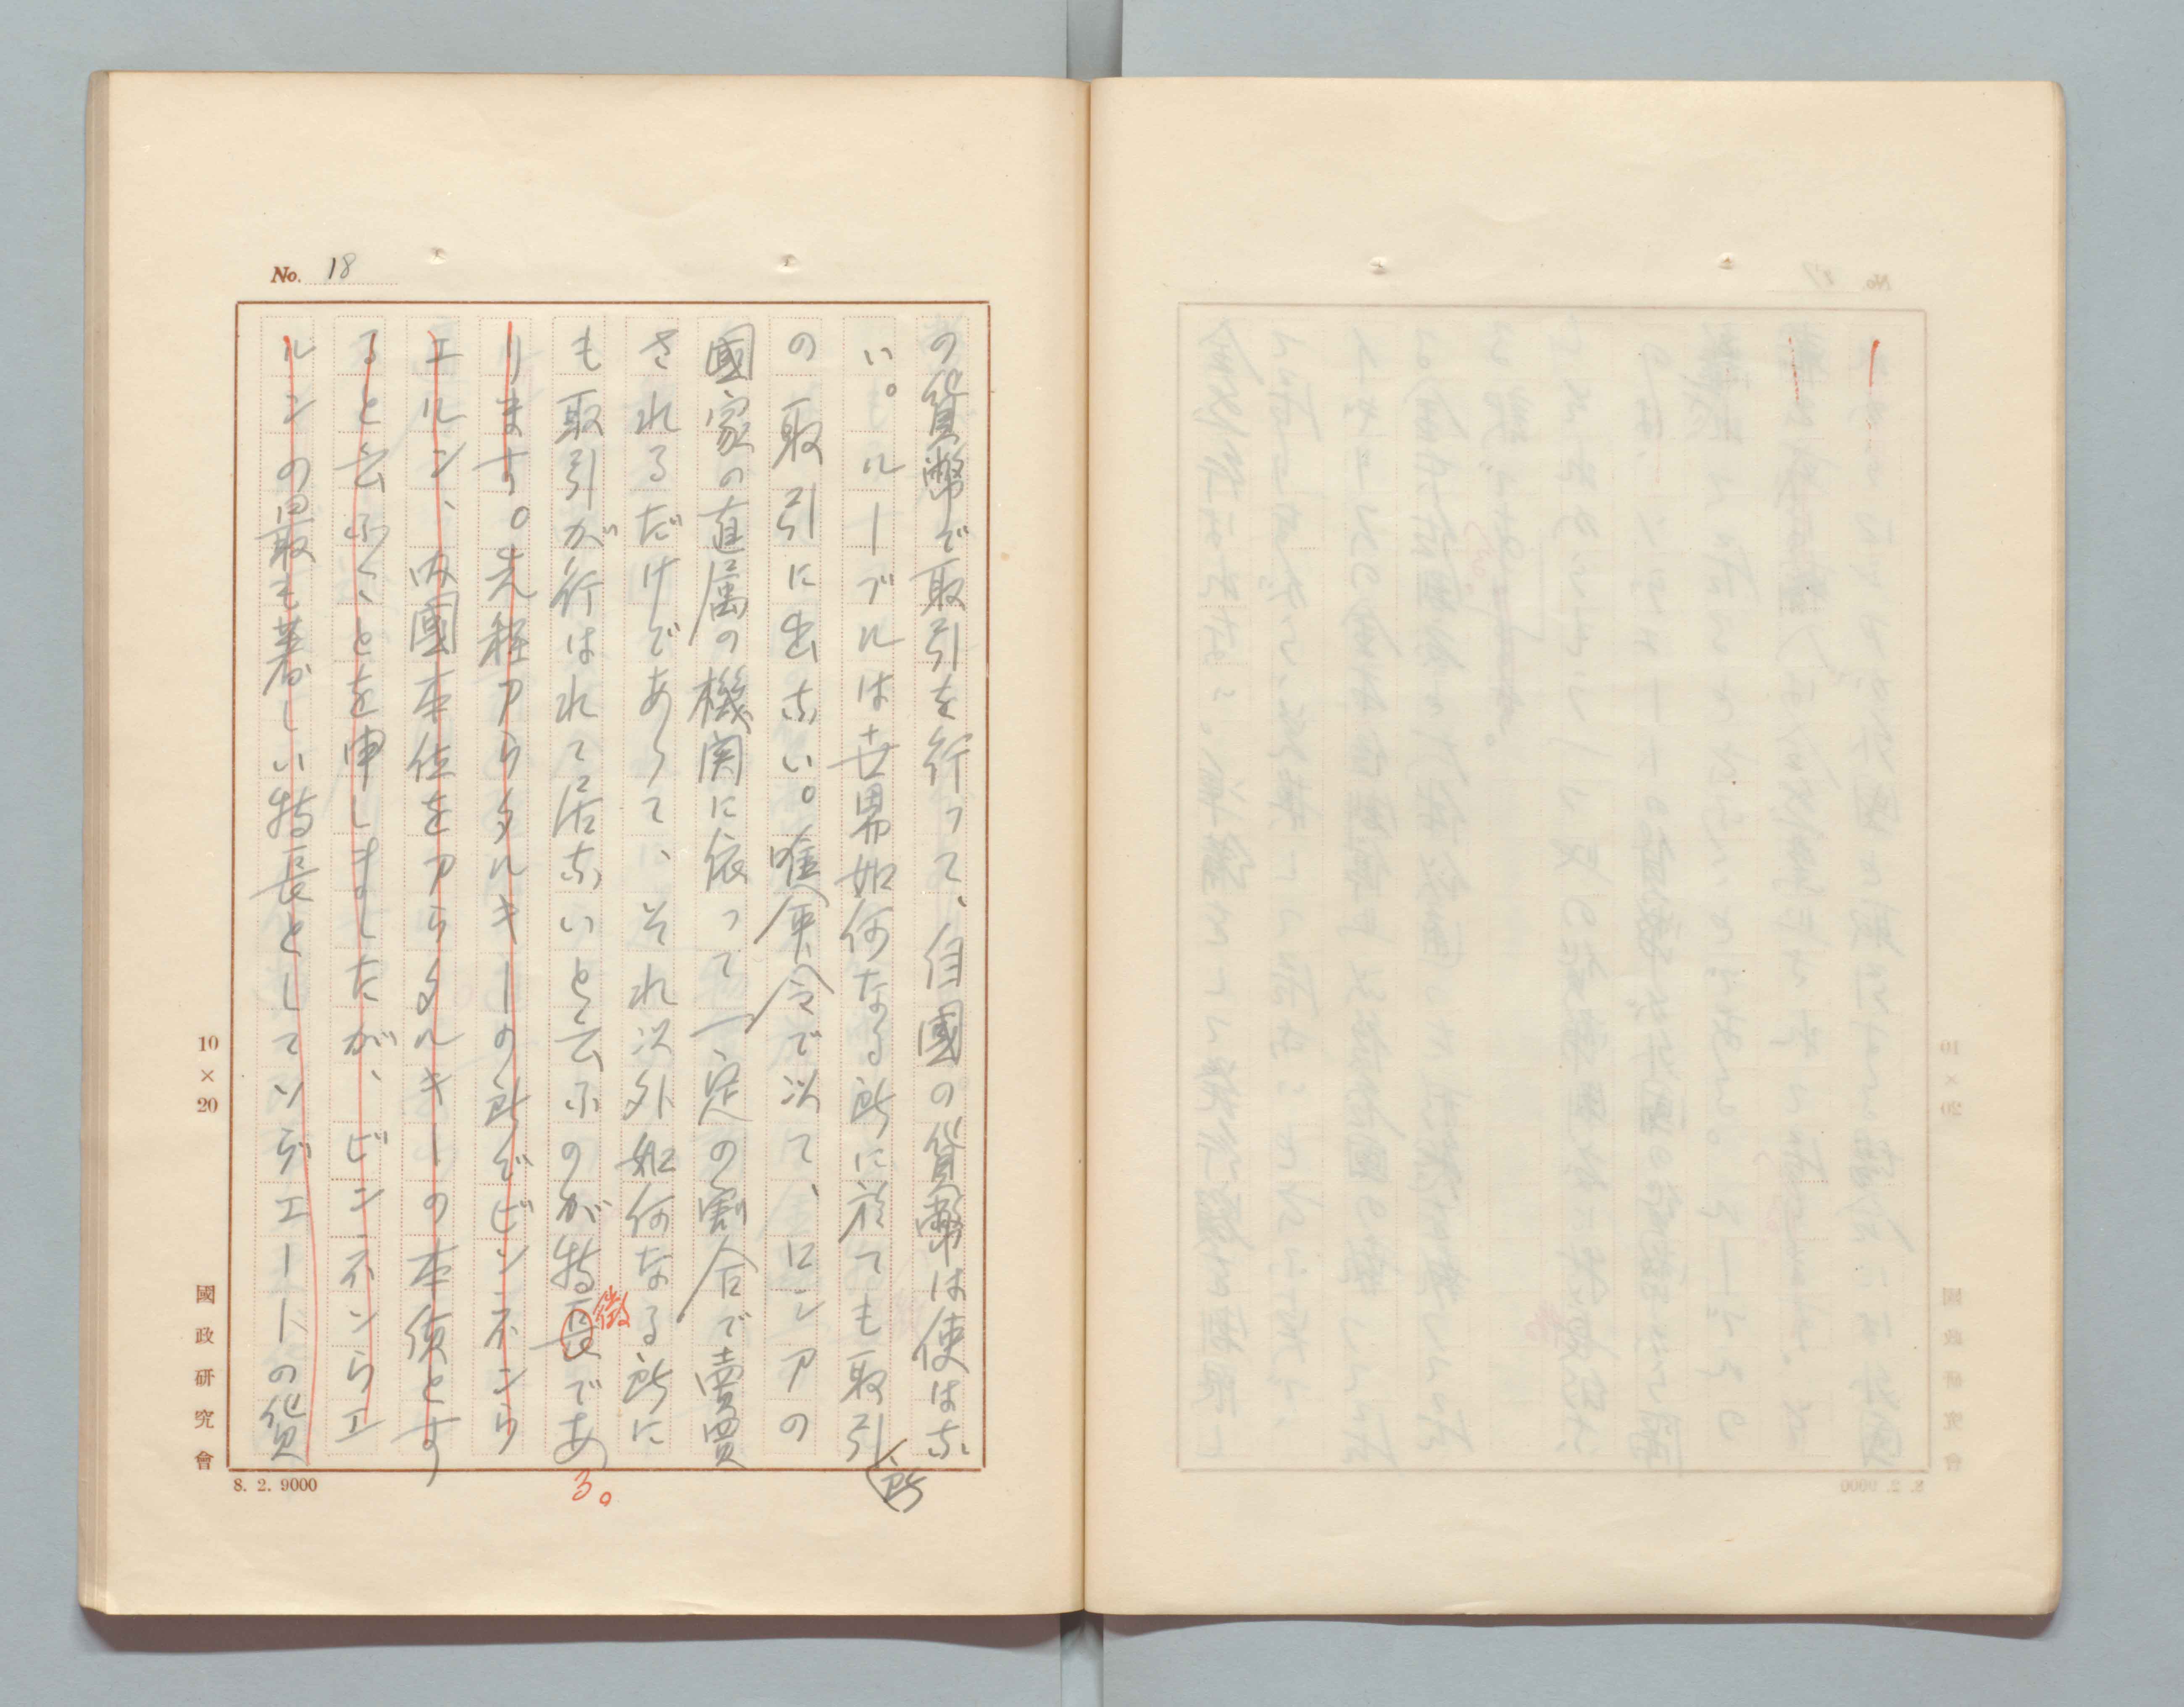 No. 18
の貨幣で取引を行って、自國の貨幣は使はな
い。ルーブルは世界如何なる所に於ても取引所
の取引に出ない。唯命令で以て、ロシアの
國家の直属の機関に依って一定の割合で賣買
されるだけであって、それ以外如何なる所に
も取引が行はれて居ないと云ふのが特長徴であ
る。
ります。先程アウタルキーの所でビンネンウ
エルン、内國本位をアウタルキーの本質とす
ると云ふことを申しましたが、ビンネンウエ
ルンの最も著しい特長としてソヴエートの貨
10×20
國政研究會
8. 2. 9000